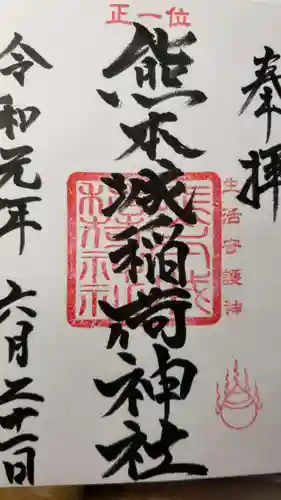 奉拝
正一位
熊本城稲荷神社
生活守護神
令和元年六月二十一日